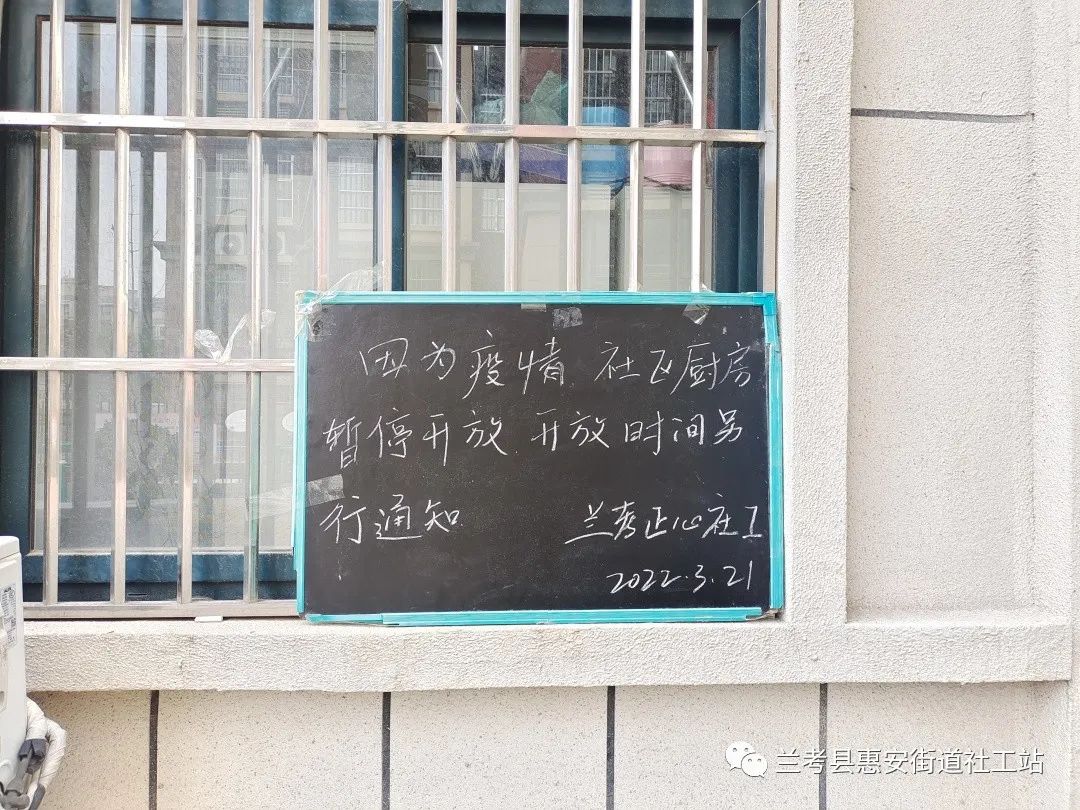 因为疫情 社区厨房
暂停开放 开放时间另
行通知
兰考正心社工
2022.3.21
兰考县惠安街道社工站